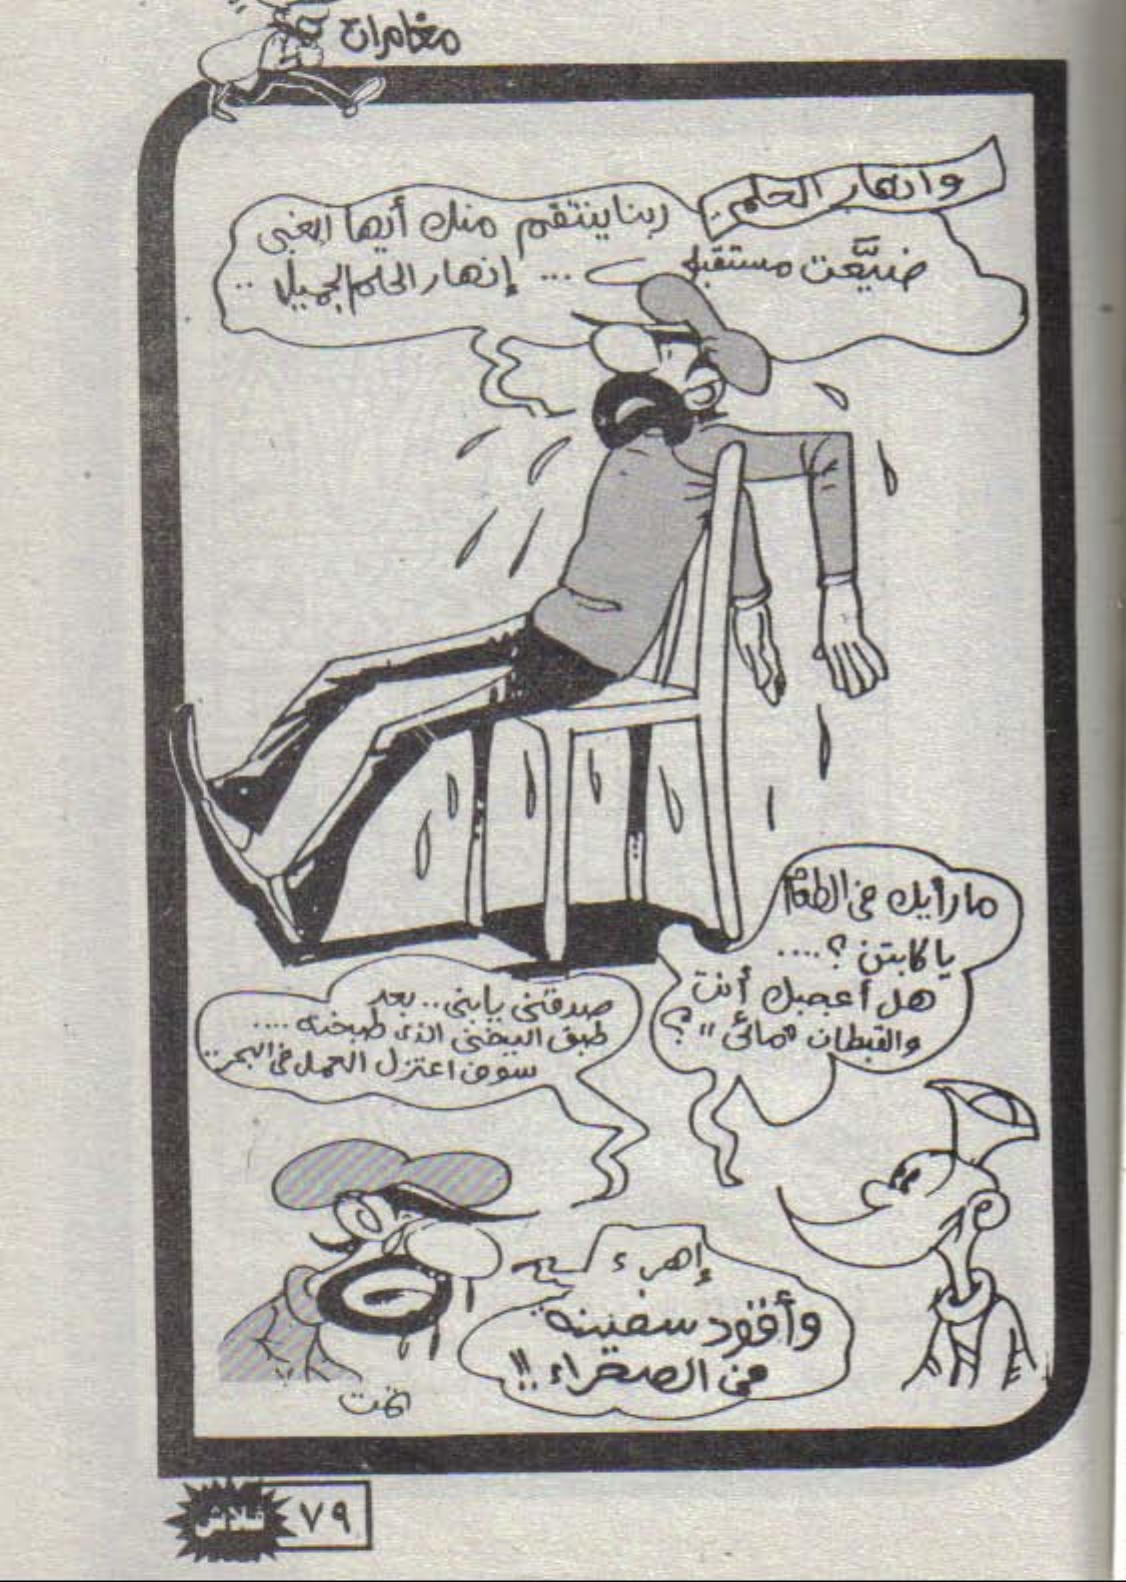 مغامرات
وانهار الحلم..
ربنا ينتقم منك أيها الغبى
ضيَّعت مستقبلى ... إنهار الحلم الجميل ..
ما رأيك فى الطعام
يا كابتن ؟ ....
هل أعجبك أنت
والقبطان "مائى" ؟
صدقنى يا بنى .. بعد
طبق البيض الذى طبخته ....
سوف اعتزل العمل فى البحر ..
وأقود سفينة
فى الصحراء !!
تمت
٧٩
فلاش